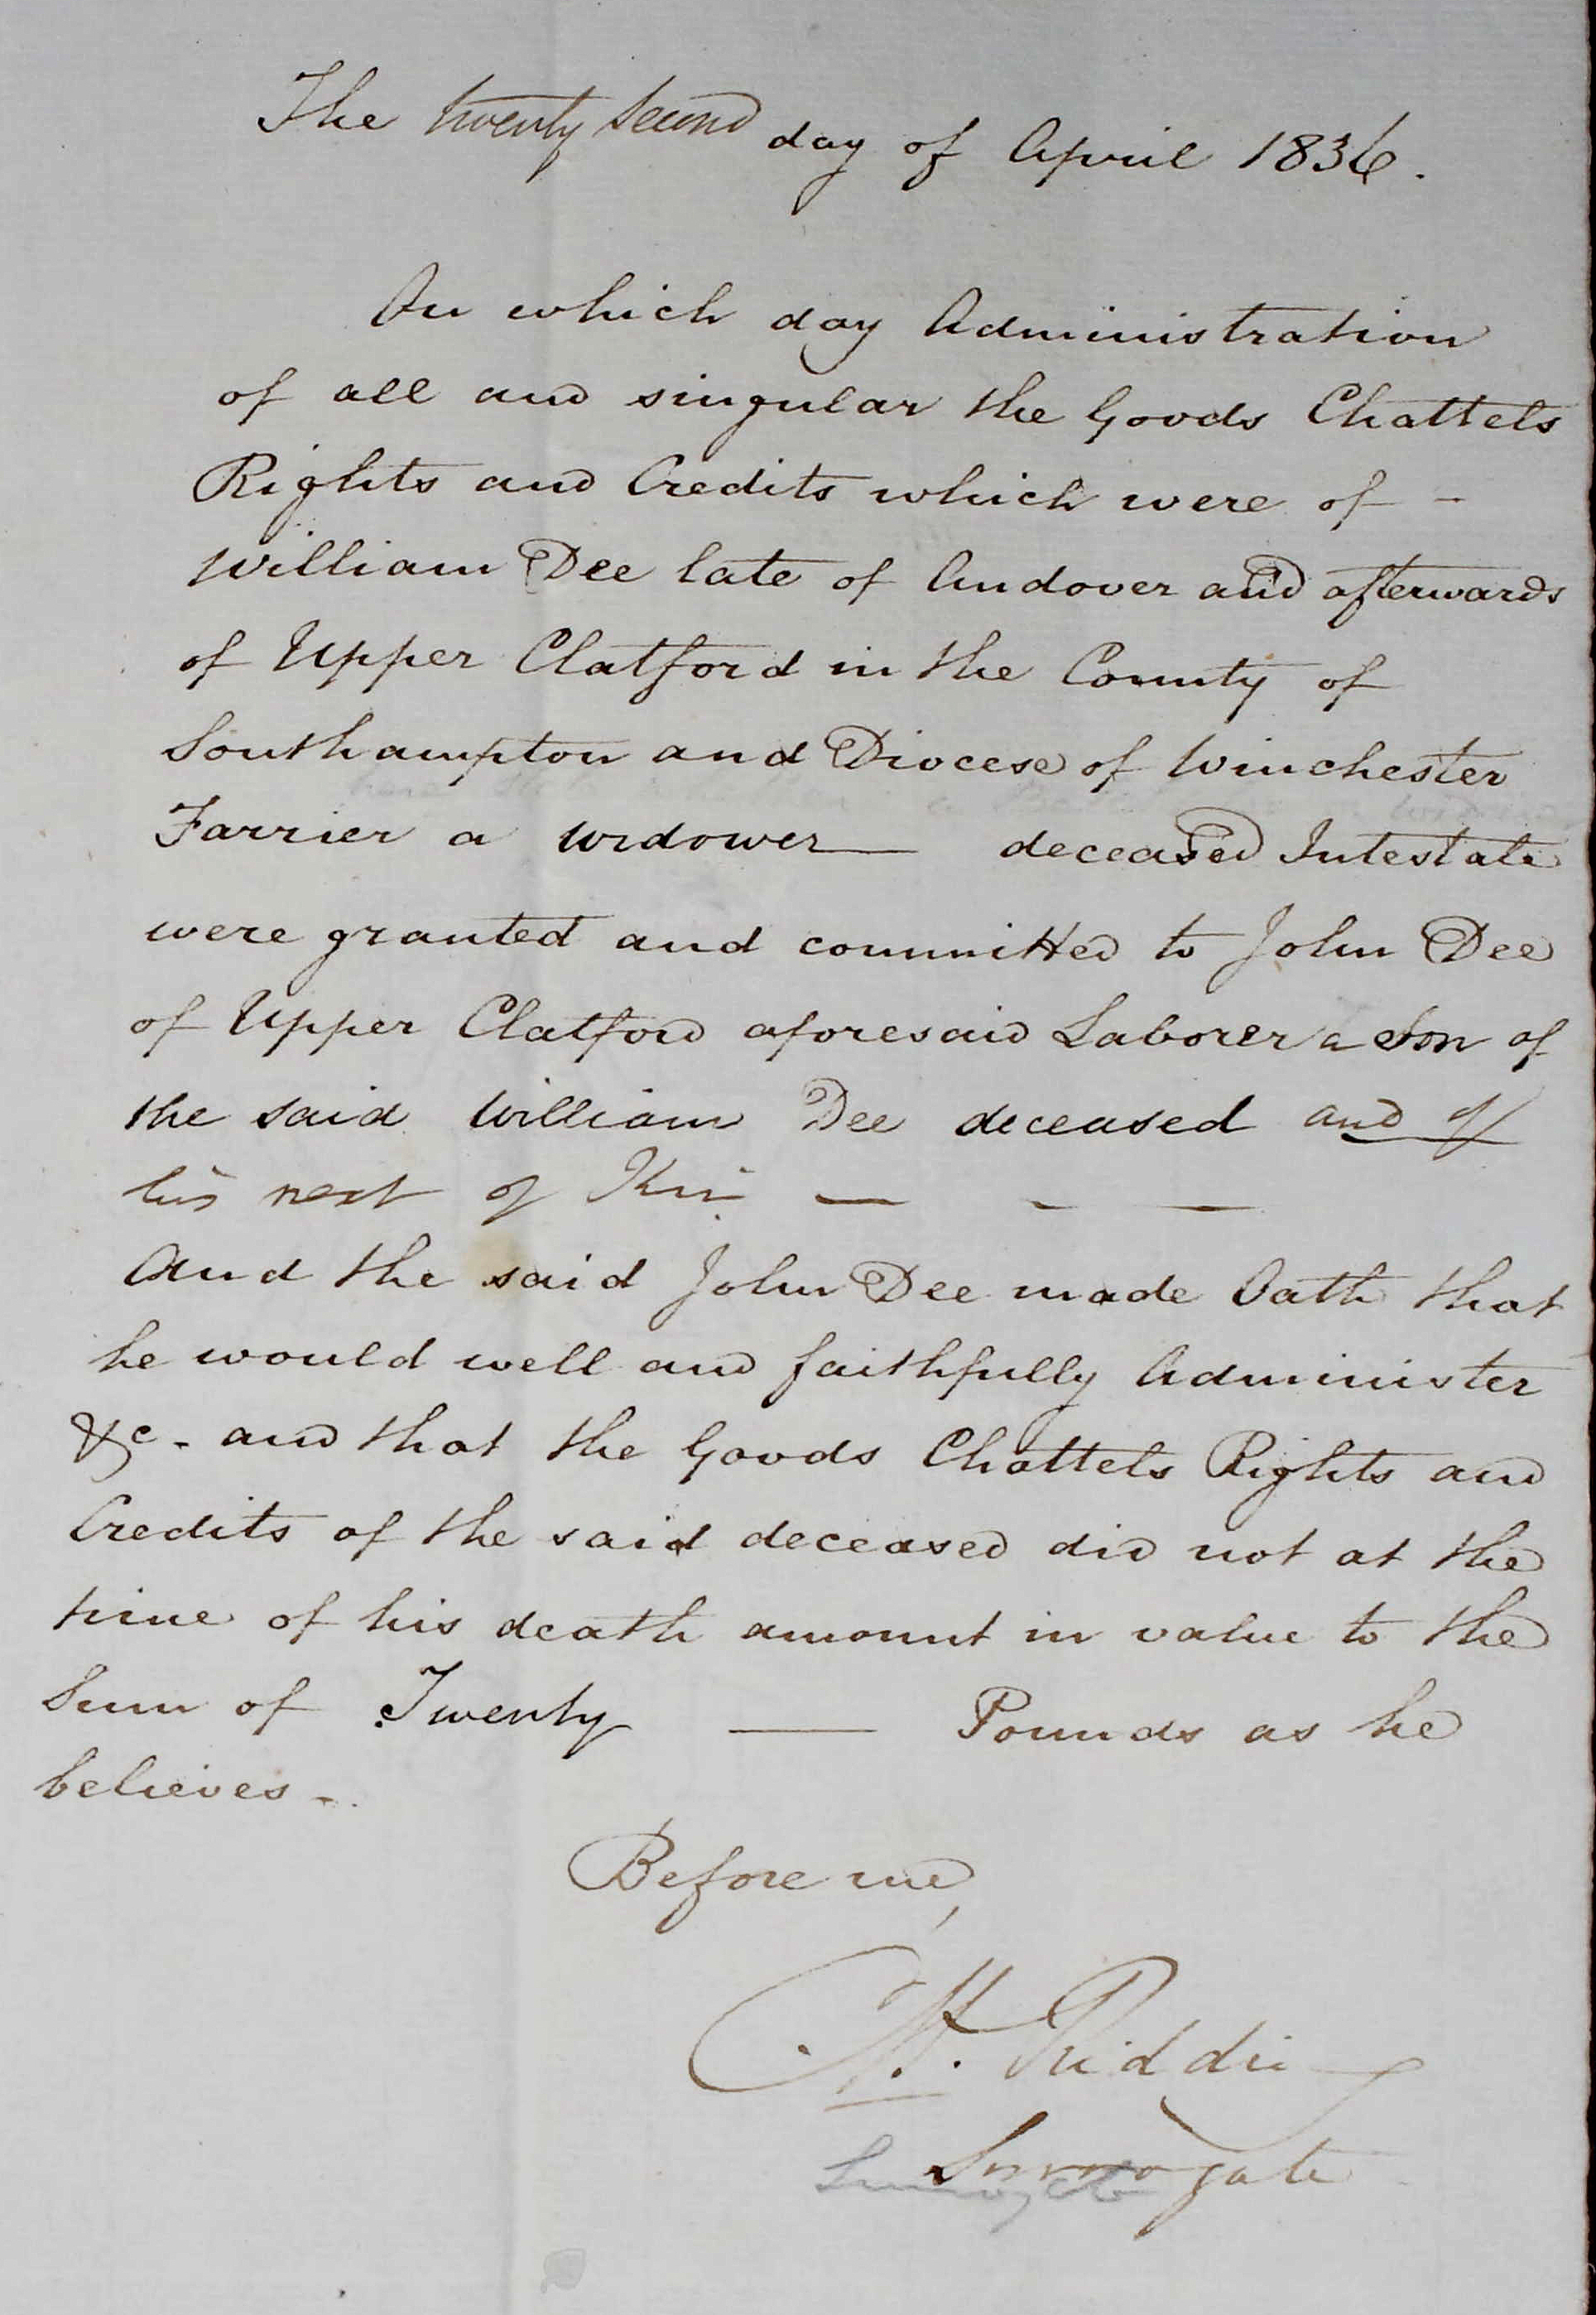 The twenty second day of April 1836.
On which day Administration
of all and singular the Goods Chattels
Rights and Credits which were of -
William Dee late of Andover and afterwards
of Upper Clatford in the County of
Southampton and Diocese of Winchester
Farrier a widower — deceased Intestate
were granted and committed to John Dee
of Upper Clatford aforesaid Laborer a Son of
the said William Dee deceased and of
his next of Kin — - —
And the said John Dee made Oath that
he would well and faithfully Administer
&c - and that the Goods Chattels Rights and
Credits of the said deceased did not at the
time of his death amount in value to the
Sum of Twenty — Pounds as he
believes -
Before me,
Surrogate
Surrogate